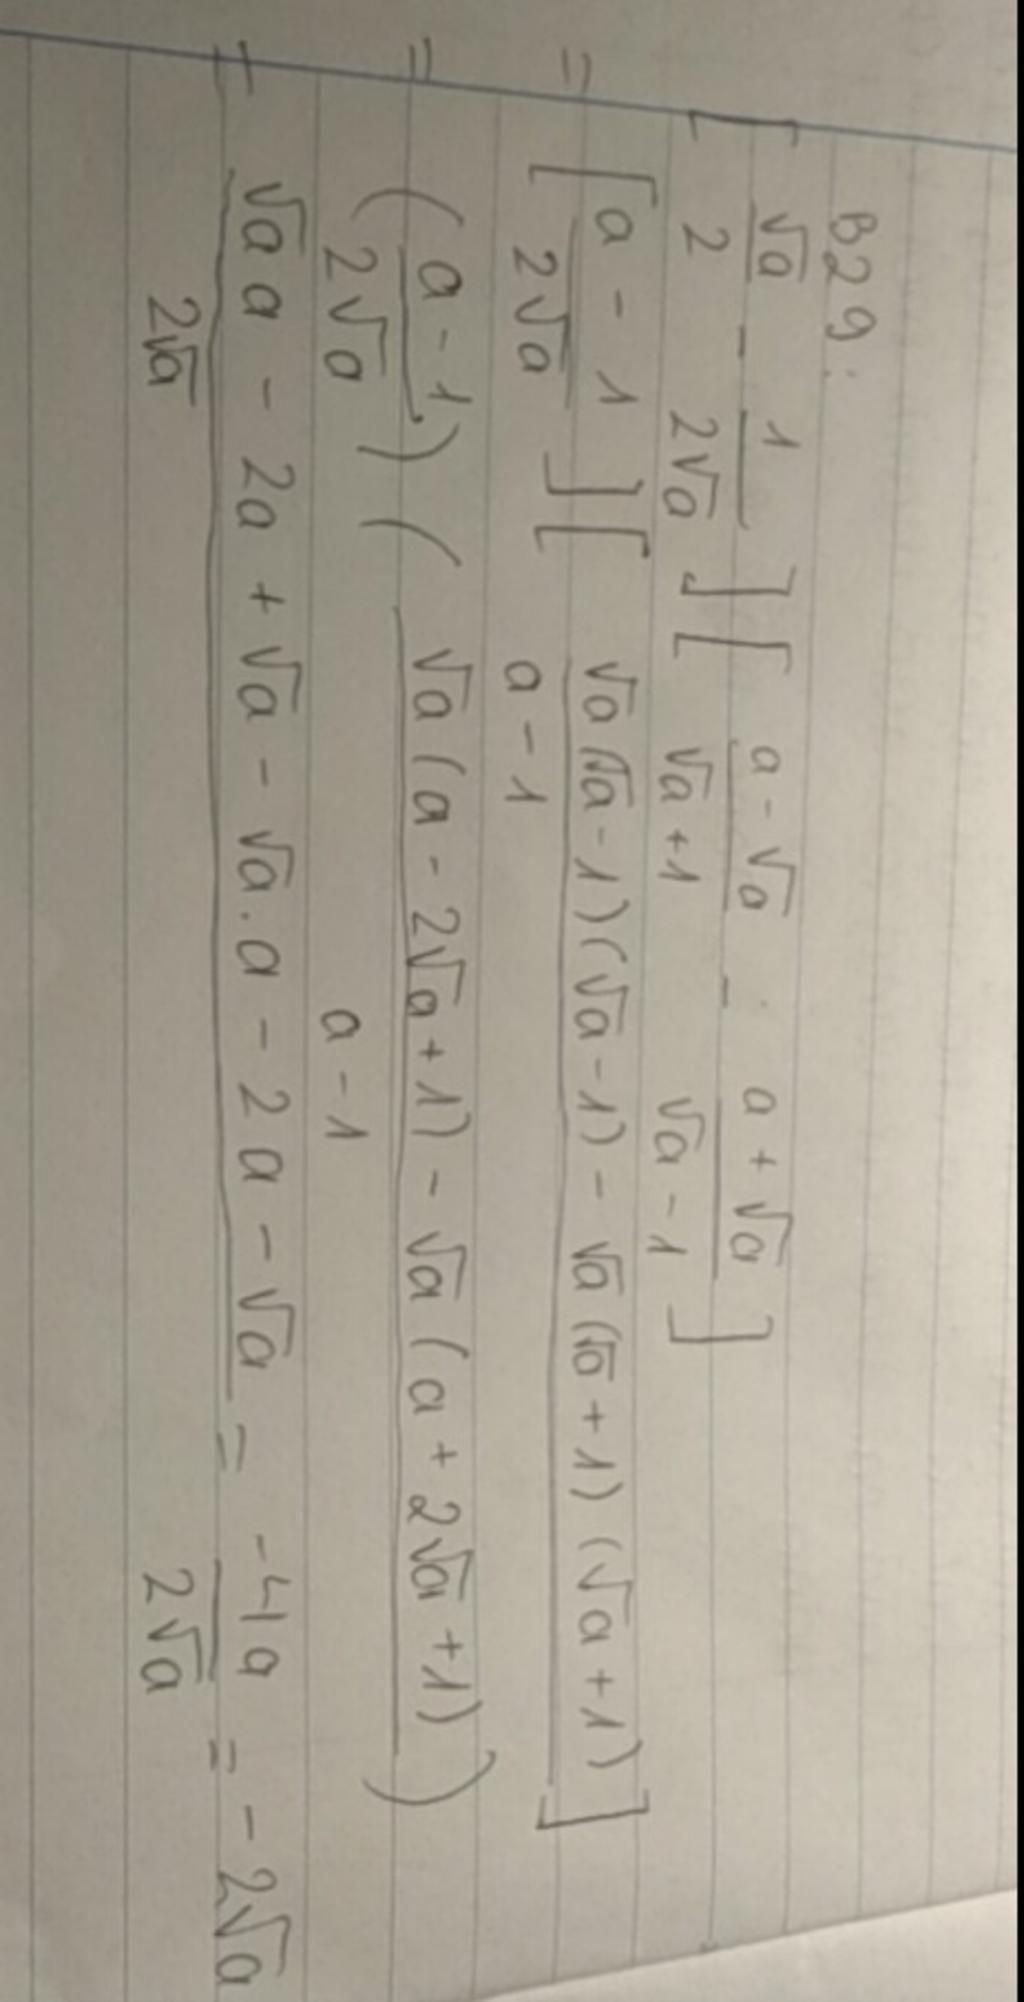 B29:
[√a/2 - 1/2√a] [a-√a/√a+1 - a+√a/√a-1]
= [a-1/2√a] [√a(√a-1)(√a-1) - √a(√a+1)(√a+1)/a-1]
= (a-1/2√a) (√a(a-2√a+1) - √a(a+2√a+1)/a-1)
= √a a - 2a + √a - √a.a - 2a - √a/2√a = -4a/2√a = -2√a